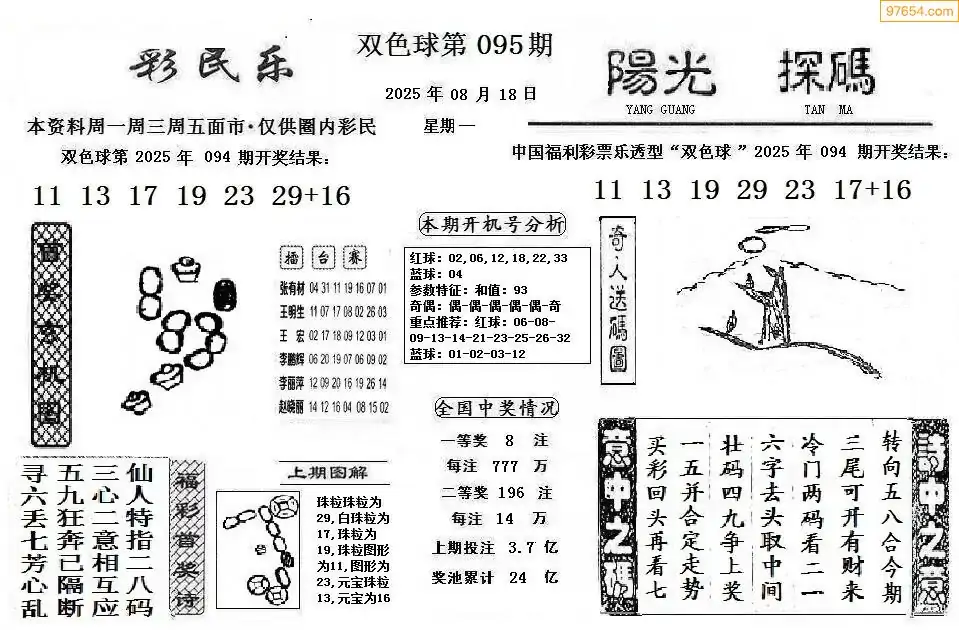 97654.com
彩民乐
双色球第 095 期
2025 年 08 月 18 日
星期一
陽光 探碼
YANG GUANG TAN MA
本资料周一周三周五面市·仅供圈内彩民
双色球第 2025 年 094 期开奖结果：
11 13 17 19 23 29+16
中国福利彩票乐透型“双色球 ”2025 年 094 期开奖结果：
11 13 19 29 23 17+16
擂台赛
张有材 04 31 11 19 16 07 01
王明生 11 07 17 08 02 26 03
王 宏 02 17 18 09 12 03 01
李鹏辉 06 20 19 07 06 09 02
李丽萍 12 09 20 16 19 26 14
赵晓丽 14 12 16 04 08 15 02
本期开机号分析
红球：02,06,12,18,22,33
蓝球：04
参数特征：和值：93
奇偶：偶-偶-偶-偶-偶-奇
重点推荐：红球：06-08-
09-13-14-21-23-25-26-32
蓝球：01-02-03-12
奇人送碼圖
全国中奖情况
一等奖 8 注
每注 777 万
二等奖 196 注
每注 14 万
上期投注 3.7 亿
奖池累计 24 亿
仙人特指二八码
三心二意相互应
五九狂奔已隔断
寻六丢七芳心乱
福彩首奖诗
上期图解
珠粒珠粒为
29,白珠粒为
17,珠粒为
19,珠粒图形
为11,图形为
23,元宝珠粒
13,元宝为16
转向五八合今期
三尾可开有财来
冷门两码看二一
六字去头取中间
壮码四九争上奖
一五并合定走势
买彩回头再看七